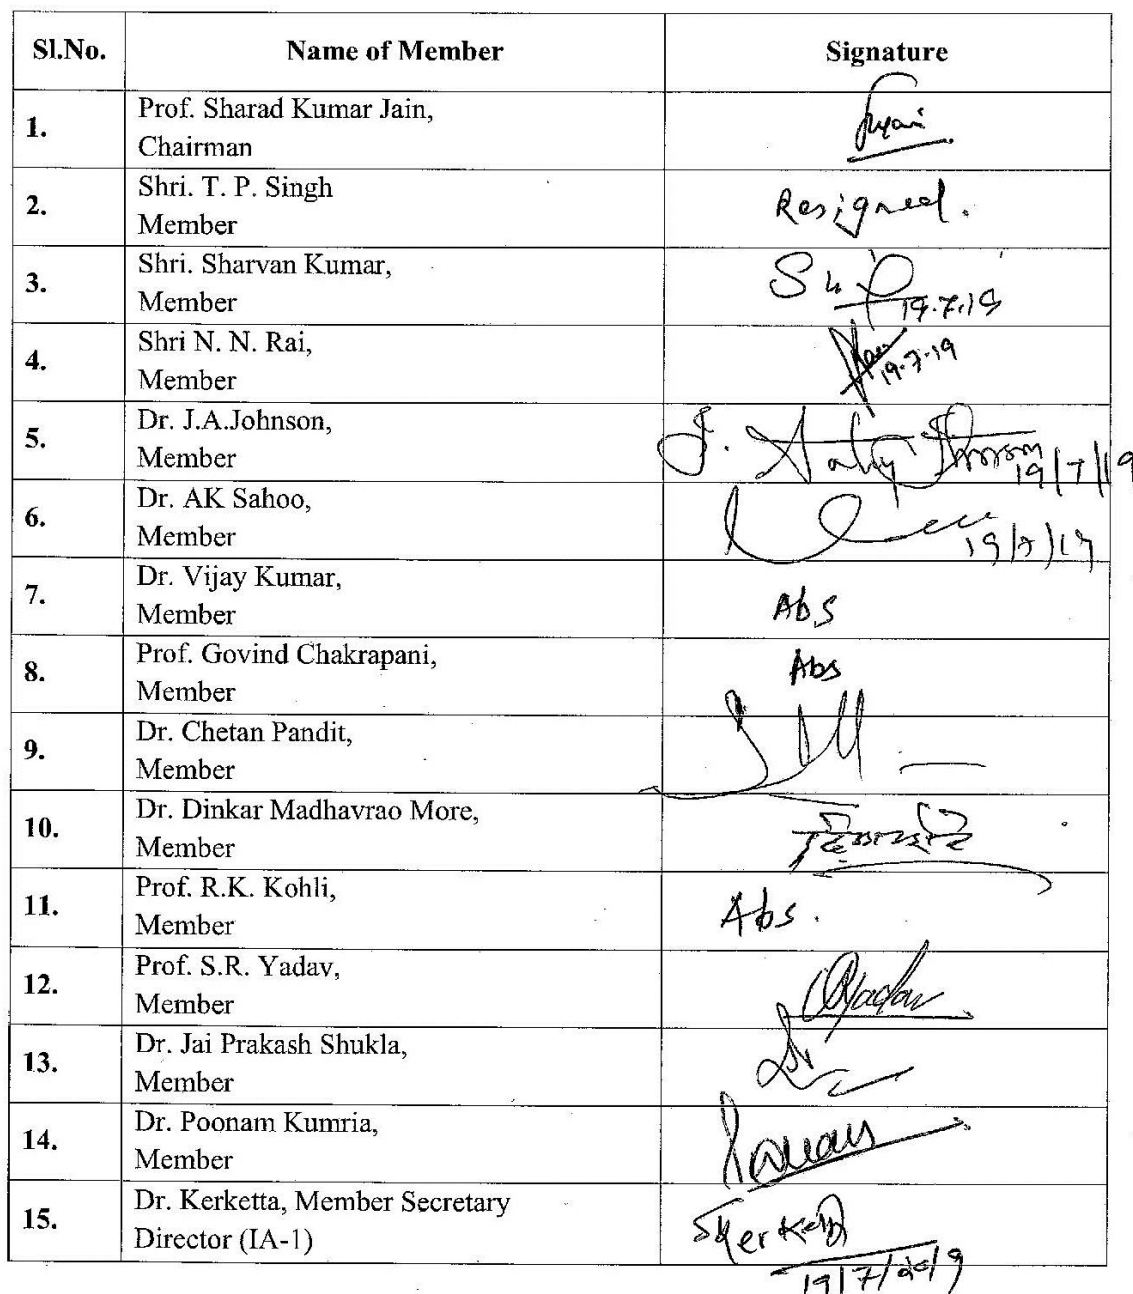 Sl.No. Name of Member Signature
1. Prof. Sharad Kumar Jain,
Chairman
2. Shri. T. P. Singh Resigned.
Member
3. Shri. Sharvan Kumar,
Member 19.7.19
4. Shri N. N. Rai,
Member 19.7.19
5. Dr. J.A.Johnson,
Member 19/7/19
6. Dr. AK Sahoo,
Member 19/7/19
7. Dr. Vijay Kumar, Abs
Member
8. Prof. Govind Chakrapani, Abs
Member
9. Dr. Chetan Pandit,
Member
10. Dr. Dinkar Madhavrao More,
Member
11. Prof. R.K. Kohli, Abs.
Member
12. Prof. S.R. Yadav,
Member
13. Dr. Jai Prakash Shukla,
Member
14. Dr. Poonam Kumria,
Member
15. Dr. Kerketta, Member Secretary
Director (IA-1)
19/7/2019